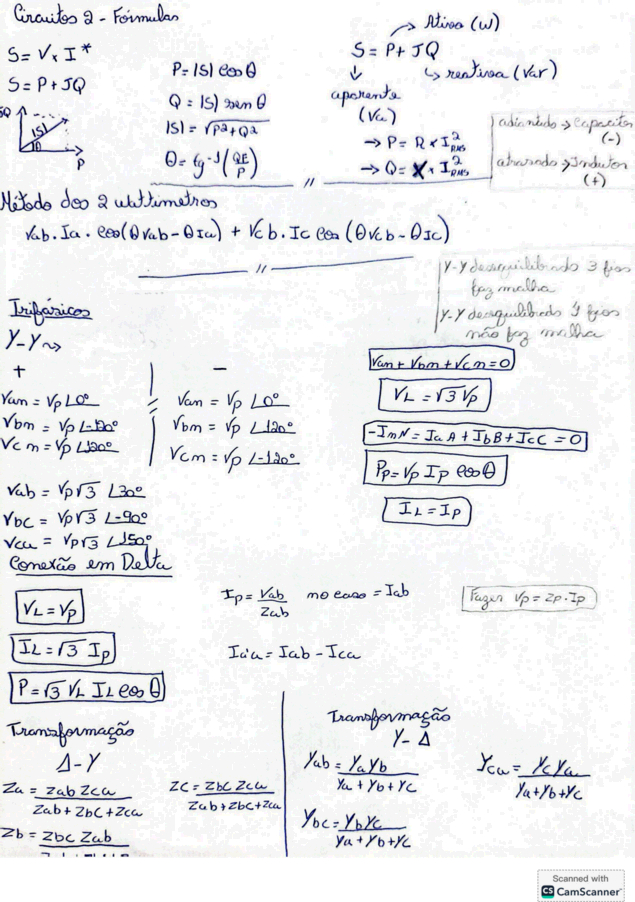 Circuitos 2 - Fórmulas
S = V x I*
S = P + JQ
SQ
|S|
θ
P
P = |S| cos θ
Q = |S| sen θ
|S| = √P²+Q²
θ = tg⁻¹(QE/P)
→ Ativa (W)
S = P + JQ
↳ reativa (Var)
↓
aparente
(Va)
→ P = R x I²RMS
→ Q = X x I²RMS
adiantado → Capacitor
(-)
atrasado → Indutor
(+)
//
Método dos 2 wattímetros
Vab . Ia . cos(θVab - θIa) + Vcb . Ic cos (θVcb - θIc)
//
Y-Y desequilibrado 3 fios
faz malha
Y-Y desequilibrado 4 fios
não faz malha
Trifásicos
Y-Y
+
Van = Vp ∠0°
Vbn = Vp ∠-120°
Vcn = Vp ∠120°
//
-
Van = Vp ∠0°
Vbn = Vp ∠120°
Vcn = Vp ∠-120°
Van + Vbn + Vcn = 0
VL = √3 Vp
-InN = IaA + IbB + IcC = 0
Pp = Vp Ip cos θ
IL = Ip
Vab = Vp√3 ∠30°
Vbc = Vp√3 ∠-90°
Vca = Vp√3 ∠150°
Conexão em Delta
VL = Vp
IL = √3 Ip
P = √3 VL IL cos θ
Ip = Vab/Zab no caso = Iab
Fazer Vp = Zp . Ip
Ia'a = Iab - Ica
Transformação
Δ-Y
Za = Zab Zca / Zab + Zbc + Zca
Zc = Zbc Zca / Zab + Zbc + Zca
Zb = Zbc Zab
Transformação
Y-Δ
Yab = Ya Yb / Ya + Yb + Yc
Yca = Yc Ya / Ya + Yb + Yc
Ybc = Yb Yc / Ya + Yb + Yc
Scanned with
CS CamScanner